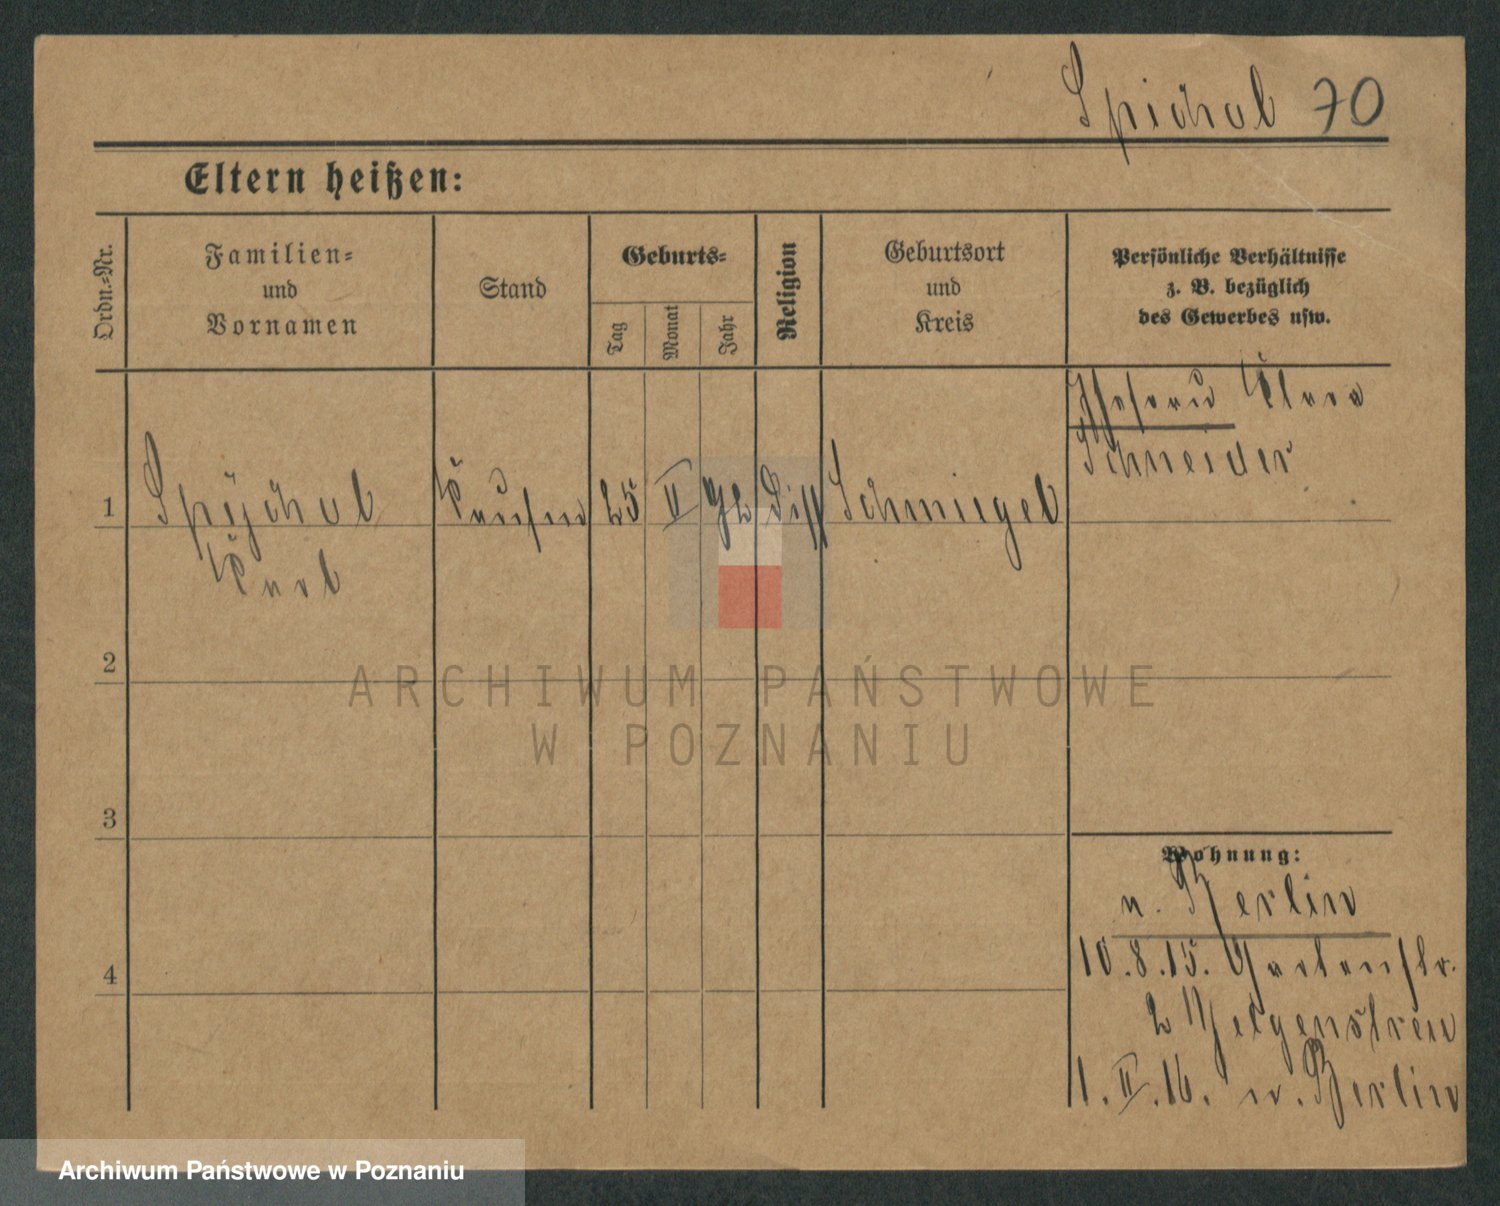 Spichol 70
Eltern heißen:
Ordn.-Nr.
Familien-
und
Vornamen
Stand
Geburts-
Tag
Monat
Jahr
Religion
Geburtsort
und
Kreis
Persönliche Verhältnisse
z. B. bezüglich
des Gewerbes usw.
Ehefrau
Schneider
1 Spÿchol Kaufm 25 II 92 Diss Schmiegel
2
ARCHIWUM PAŃSTWOWE
W POZNANIU
3
Wohnung:
n. Berlin
10.8.15. Gartenstr.
4
2
1. II. 16. n. Berlin
Archiwum Państwowe w Poznaniu